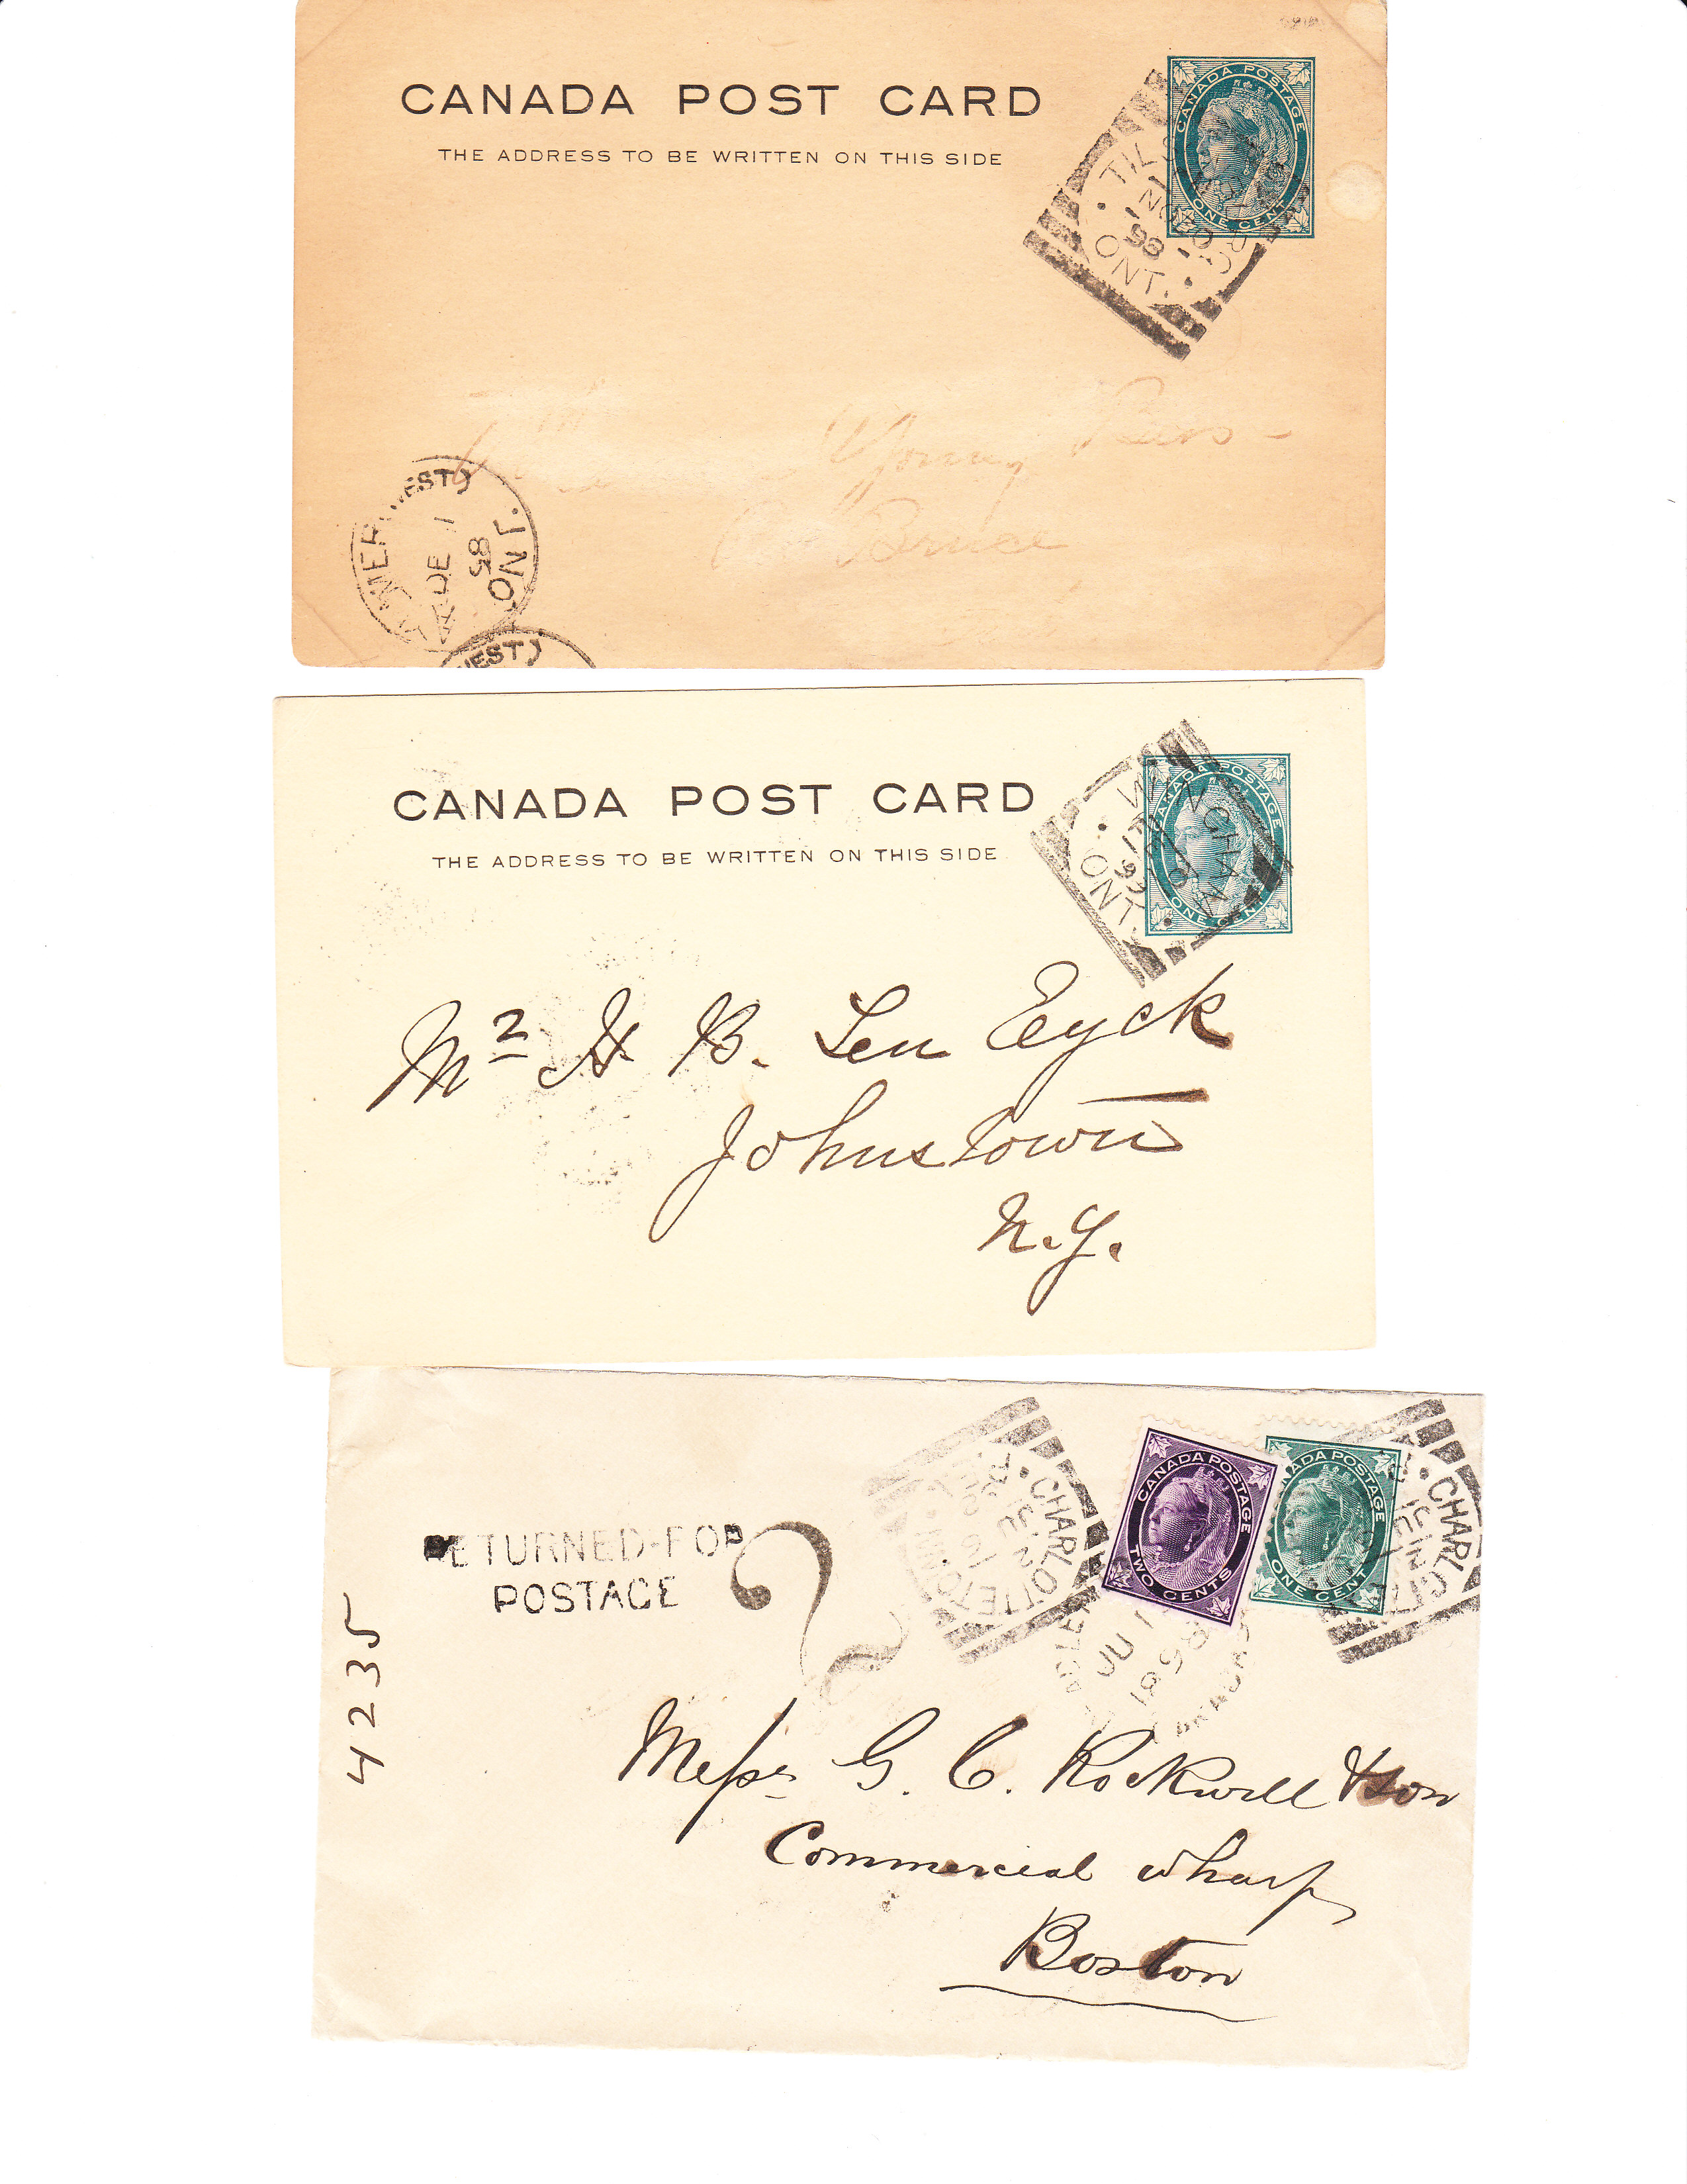 CANADA POST CARD
THE ADDRESS TO BE WRITTEN ON THIS SIDE
CANADA POSTAGE
ONE CENT
TILSONBURG
NO 30
98
ONT.
Young Bros
Bruce
WEST)
DE 1
98
ONT.
WEST)
CANADA POST CARD
THE ADDRESS TO BE WRITTEN ON THIS SIDE
CANADA POSTAGE
ONE CENT
WINGHAM
99
ONT.
Mr H B. Ten Eyck
Johnstown
N.Y.
RETURNED-FOR
POSTAGE
4235
CHARLOTTETOWN
JU 2
CANADA POSTAGE
TWO CENTS
CANADA POSTAGE
ONE CENT
CHARLOTTE
JU
Messrs G. C. Rockwell & Son
Commercial Wharf
Boston